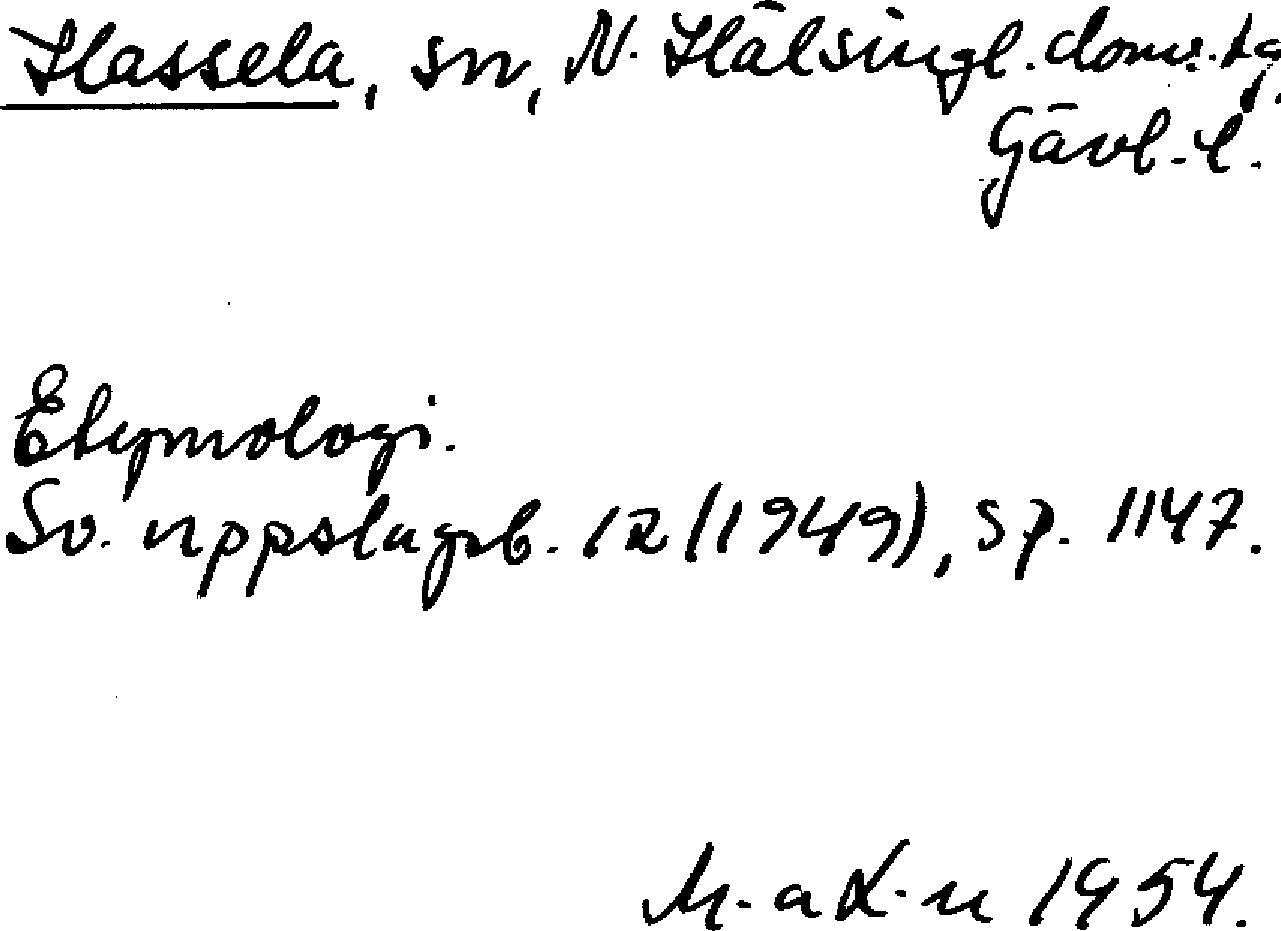 Hassela, sn, N. Hälsingl. doms.
Gävl. l.
Etymologi.
Sv. uppslagsb. 12 (1949), sp. 1147.
M-a L-n 1954.